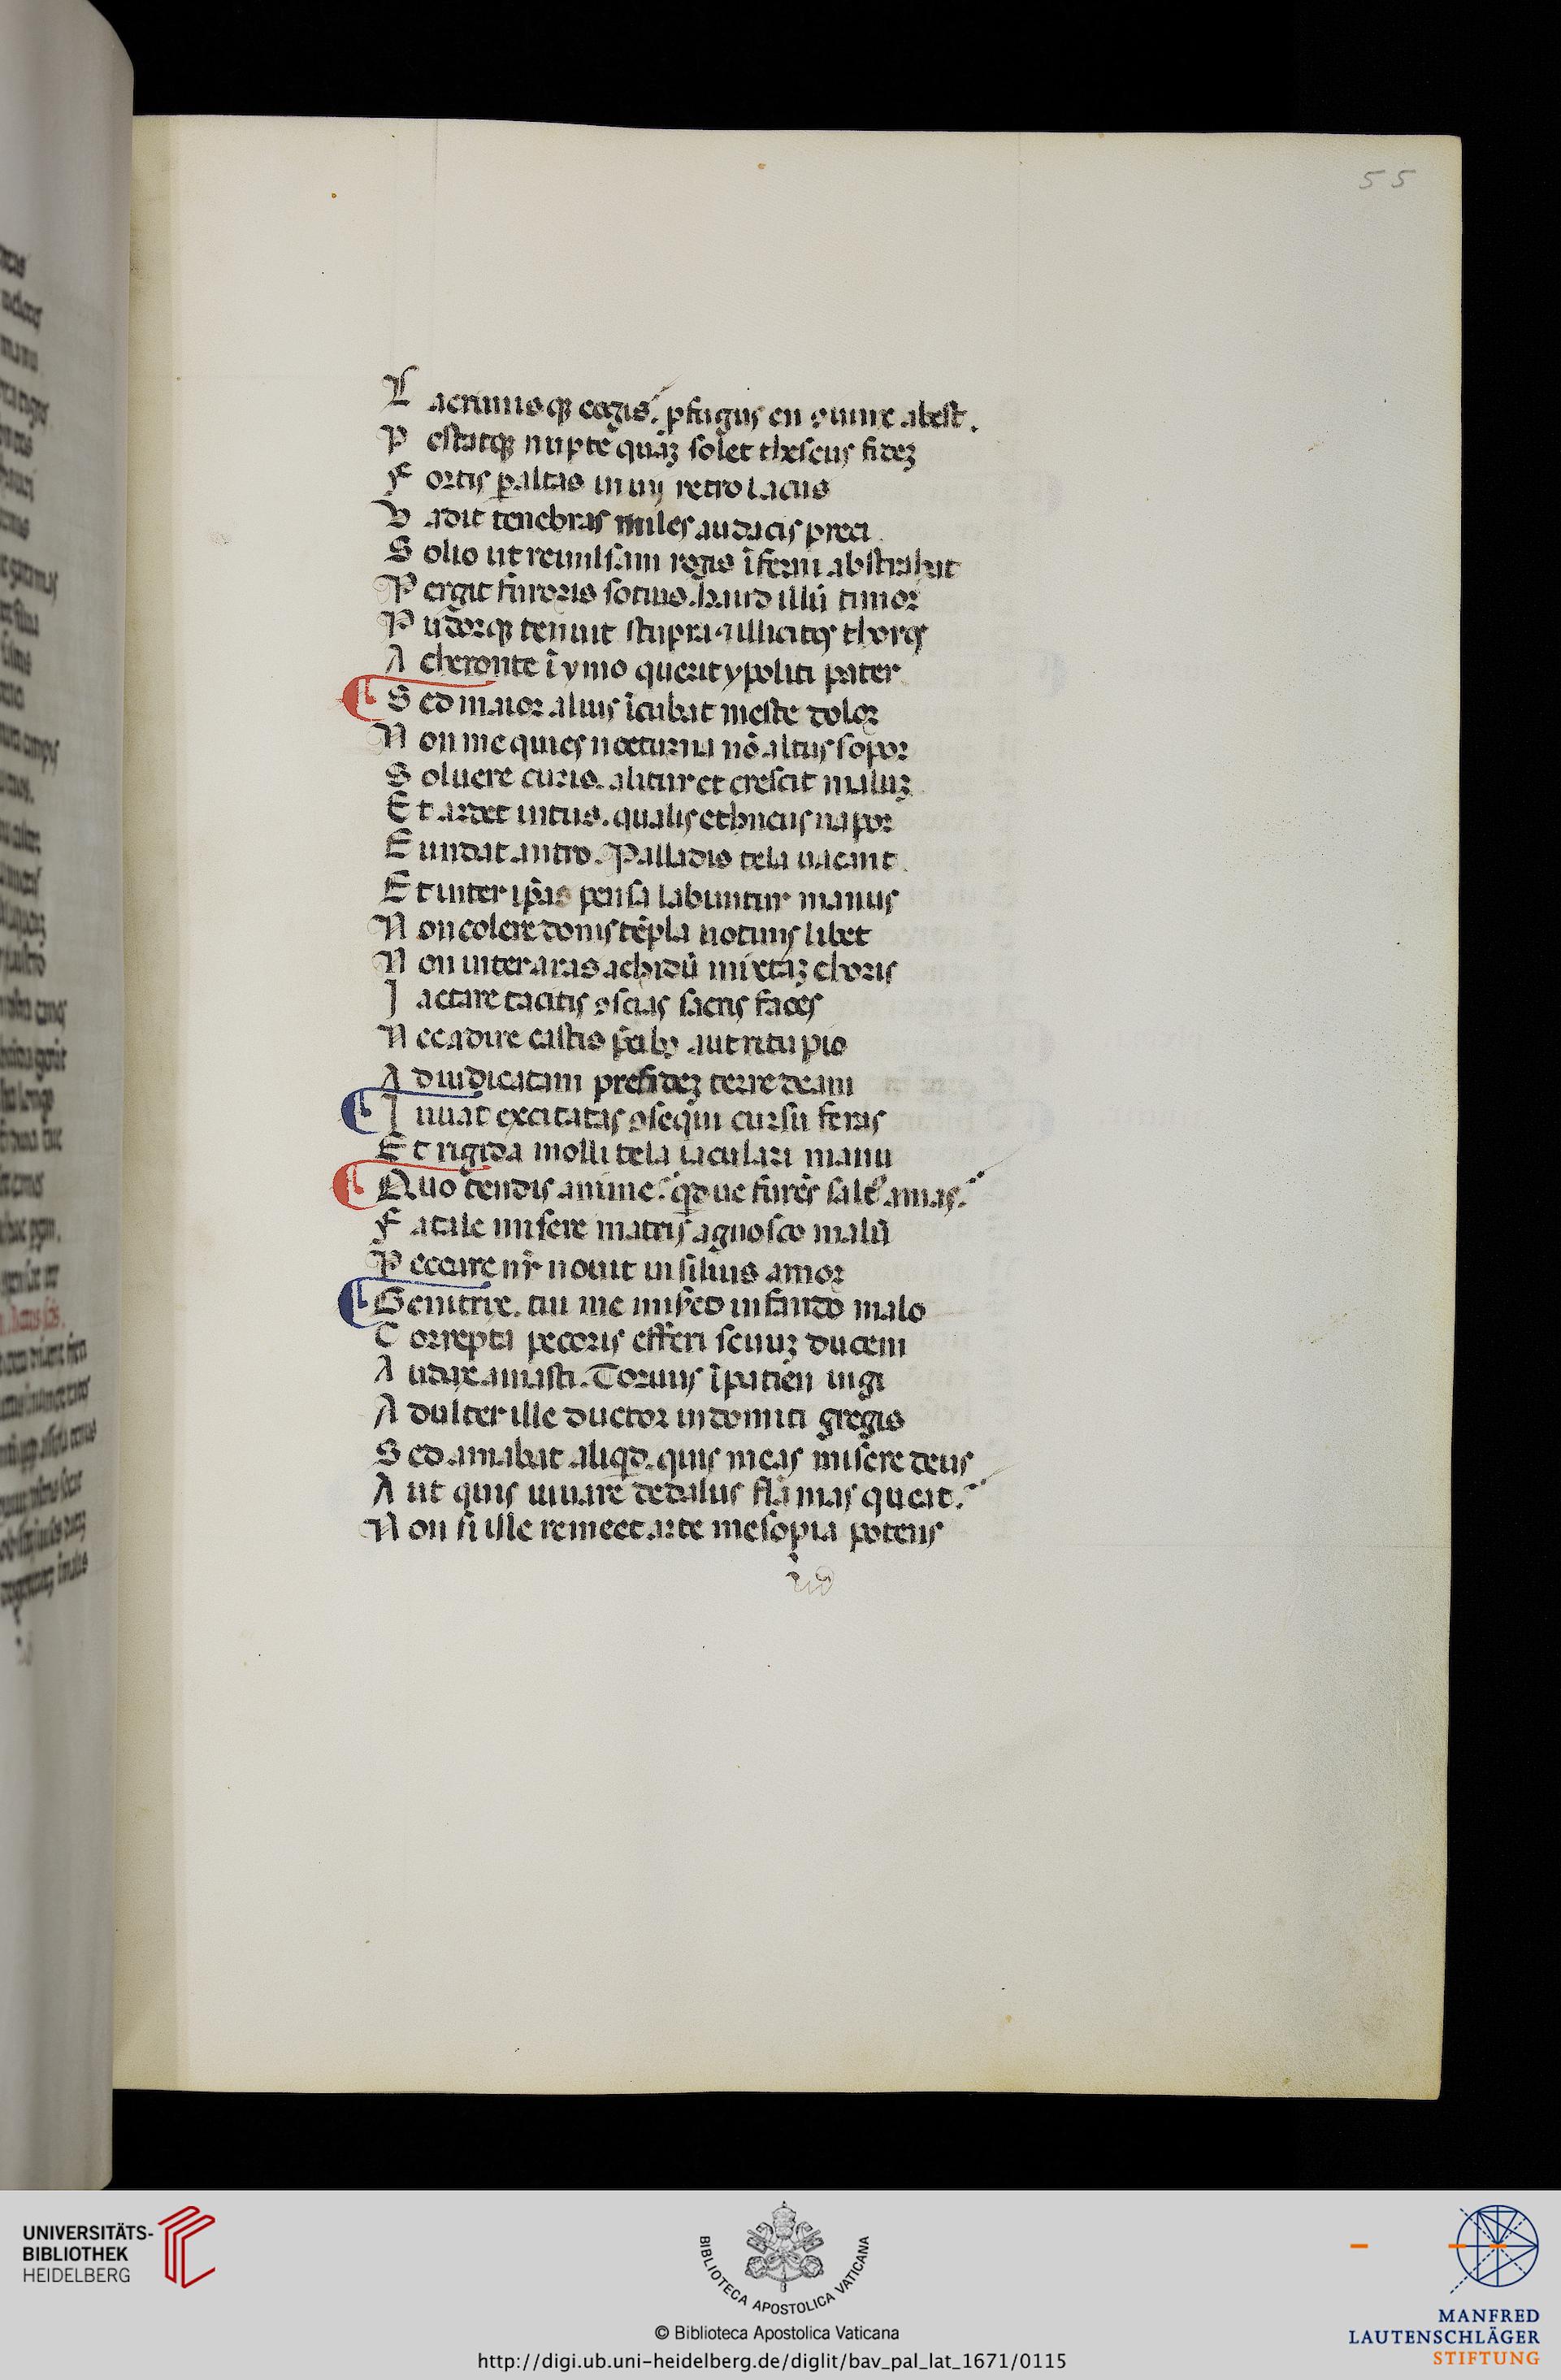 55
Lacrimisqꝫ cogis. ꝓfugus en ꝯiunx abest.
Prestatqꝫ nupte quaꝫ solet theseus fideꝫ
Fortis ꝑ altas inuij retro lacus
Vadit tenebras miles audacis proci
Solio ut reuulsam regis īferni abstrahat
Pergit furoris socius. haud illū timor
Pudorqꝫ tenuit stupra ⁊ illicitos thoros
Acheronte ī ymo querit ypoliti pater
Sed maior alius īcubat meste dolor
Non me quies nocturna nō altus sopor
Soluere curis. alitur et crescit maluꝫ
Et ardet intus. qualis ethneus uapor
Eundat antro. Palladis tela uacant
Et inter ip̄as pensa labuntur manus
Non colere donis tēpla uotiuis libet
Non inter aras achidū mixtaꝫ choris
Iactare tacitis ꝯscias sacris faces
Nec adire castis p̄cibꝫ aut ritu pio
Adiudicatam presideꝫ terre deam
Iuuat excitatas ꝯsequi cursu feras
Et rigida molli tela iaculari manu
Quo tendis anime. qͥd ue furēs salt᷎ amas.
Fatale misere matris agnosco malū
Peccare nr̄ nouit in siluis amor
Genitrix. tui me miseret infando malo
Correpta pecoris efferi seuuꝫ ducem
Audax amasti. Toruus īpatiēn iugi
Adulter ille ductor indomiti gregis
Sed amabat aliqͥd. quis meas misere deus
Aut quis iuuare dedalus flāmas queat.
Non si ille remeet arte mesopia potens
UNIVERSITÄTS-
BIBLIOTHEK
HEIDELBERG
BIBLIOTECA APOSTOLICA VATICANA
© Biblioteca Apostolica Vaticana
http://digi.ub.uni-heidelberg.de/diglit/bav_pal_lat_1671/0115
MANFRED
LAUTENSCHLÄGER
STIFTUNG